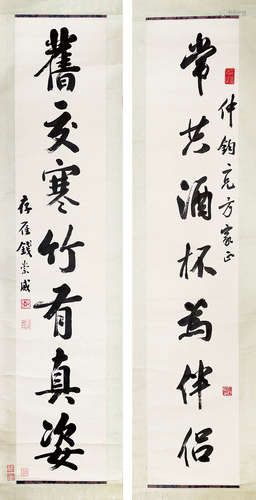 常共酒杯為伴侶
仲鈞仁兄方家正
舊交寒竹有真姿
存雁錢崇威